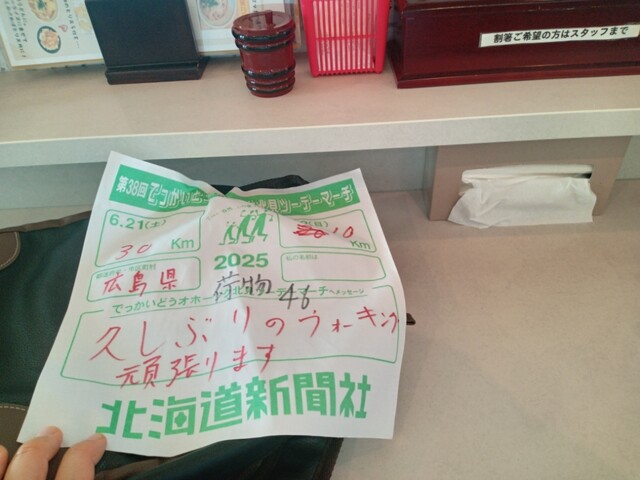 割箸ご希望の方はスタッフまで
第38回 でっかいど 北見ツーデーマーチ
6.21(土)
30 Km
10 Km
2025
広島県
荷物 46
でっかいどうオホー チへメッセージ
久しぶりのウォーキング
頑張ります
北海道新聞社